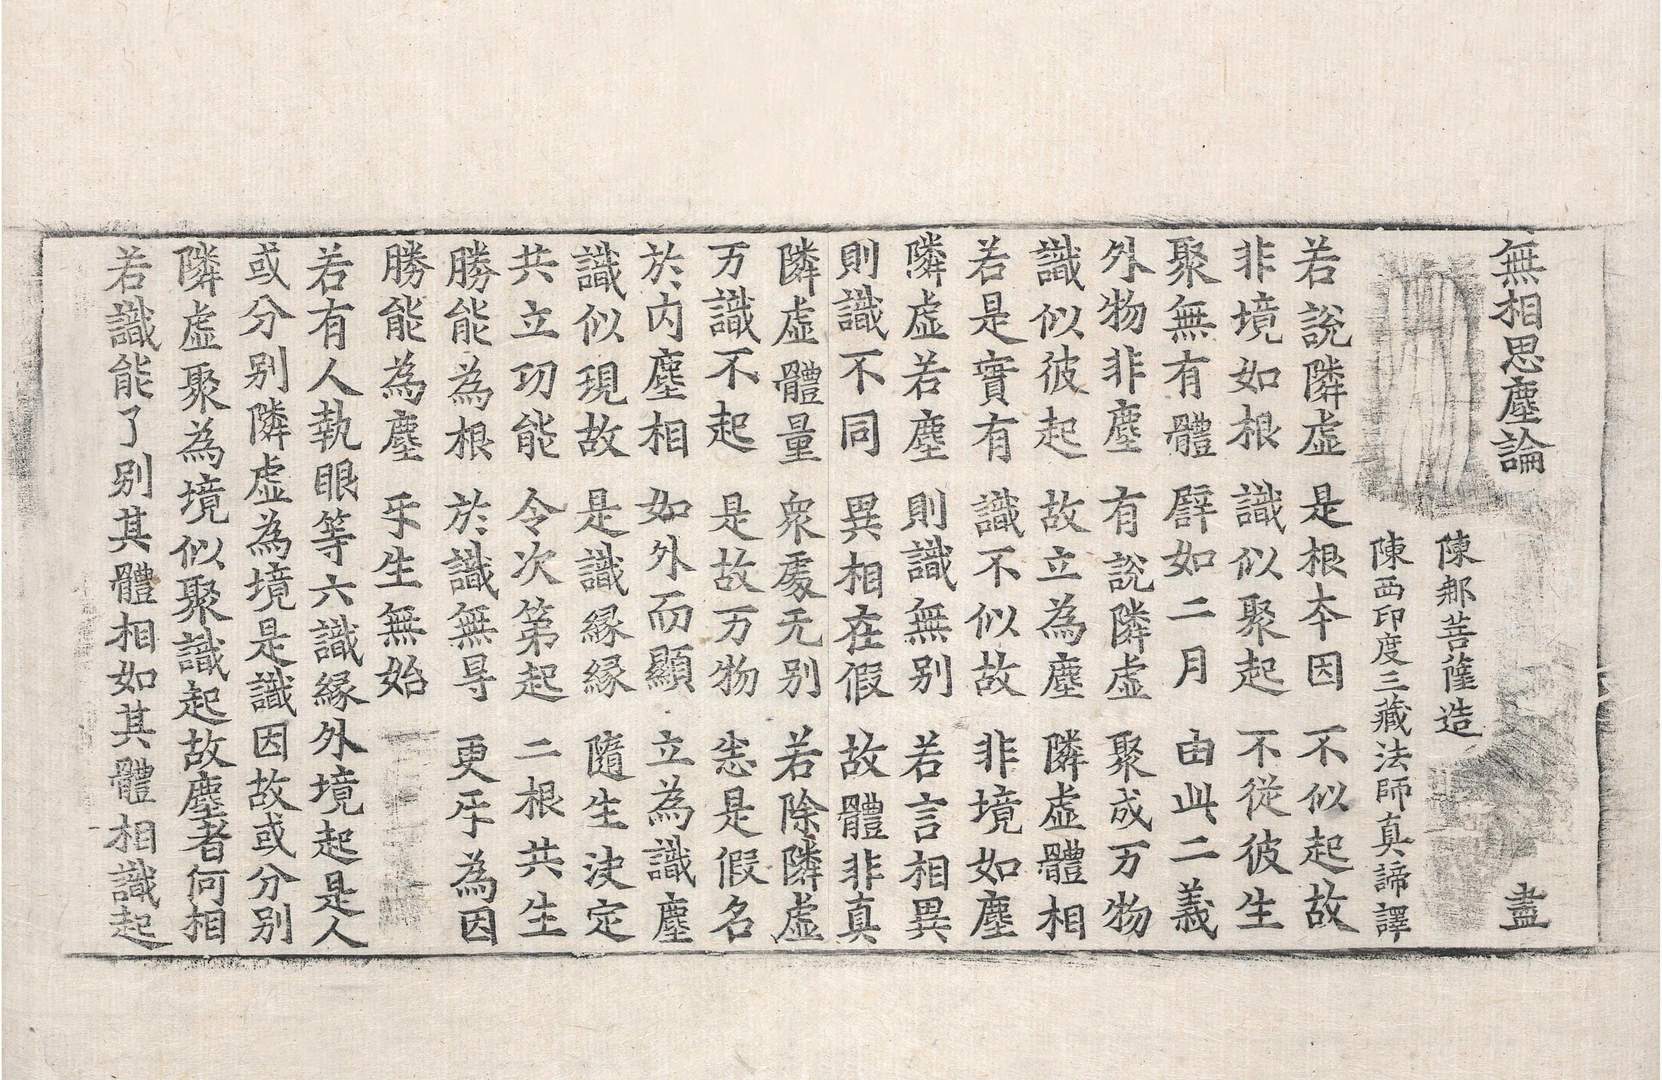 無相思塵論 盡
陳那菩薩造
陳西印度三藏法師真諦譯
若說隣虛 是根本因 不似起故
非境如根 識似聚起 不從彼生
聚無有體 譬如二月 由此二義
外物非塵 有說隣虛 聚成万物
識似彼起 故立為塵 隣虛體相
若是實有 識不似故 非境如塵
隣虛若塵 則識無別 若言相異
則識不同 異相在假 故體非真
隣虛體量 衆處无別 若除隣虛
万識不起 是故万物 悉是假名
於內塵相 如外而顯 立為識塵
識似現故 是識緣緣 隨生決定
共立功能 令次第起 二根共生
勝能為根 於識無㝵 更㸦為因
勝能為塵 㸦生無始
若有人執眼等六識緣外境起是人
或分別隣虛為境是識因故或分別
隣虛聚為境似聚識起故塵者何相
若識能了別其體相如其體相識起